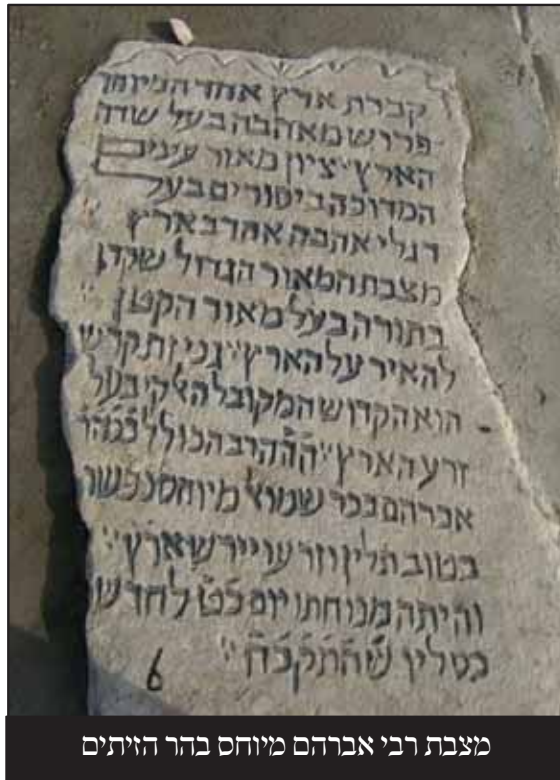 קבורת ארץ אחד המיוחד
פירוש מאהבה בעל שדה
הארץ ״ ציון מאור עינים
המדוכה ביסורים בעל
דגלי אהבה אחד בארץ
מצבת המאור הגדול שקדן
בתורה בעל מאור הקטן ״
להאיר על הארץ ״ גניזת קדש
הוא הקדוש המקובל הצ׳קי בעל
זרע הארץ ״ ההה״ר הכולל כמהר
אברהם בכר שמו׳ל מיוחס נפשו
בטוב תלין וזרעו יירש ארץ ״
והיתה מנוחתו יום כ̇ט̇ לחדש
כסליו ש̇ה̇ת̇ק̇כ̇ח̇ ״
6
מצבת רבי אברהם מיוחס בהר הזיתים